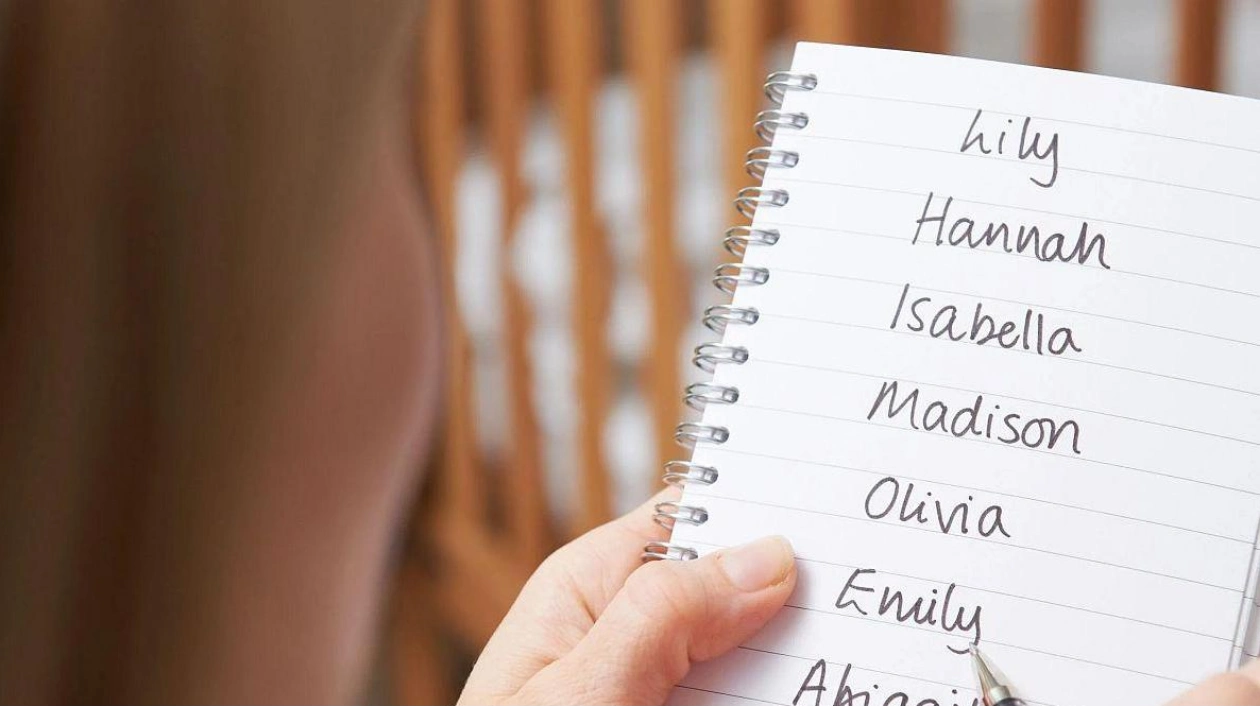 Lily
Hannah
Isabella
Madison
Olivia
Emily